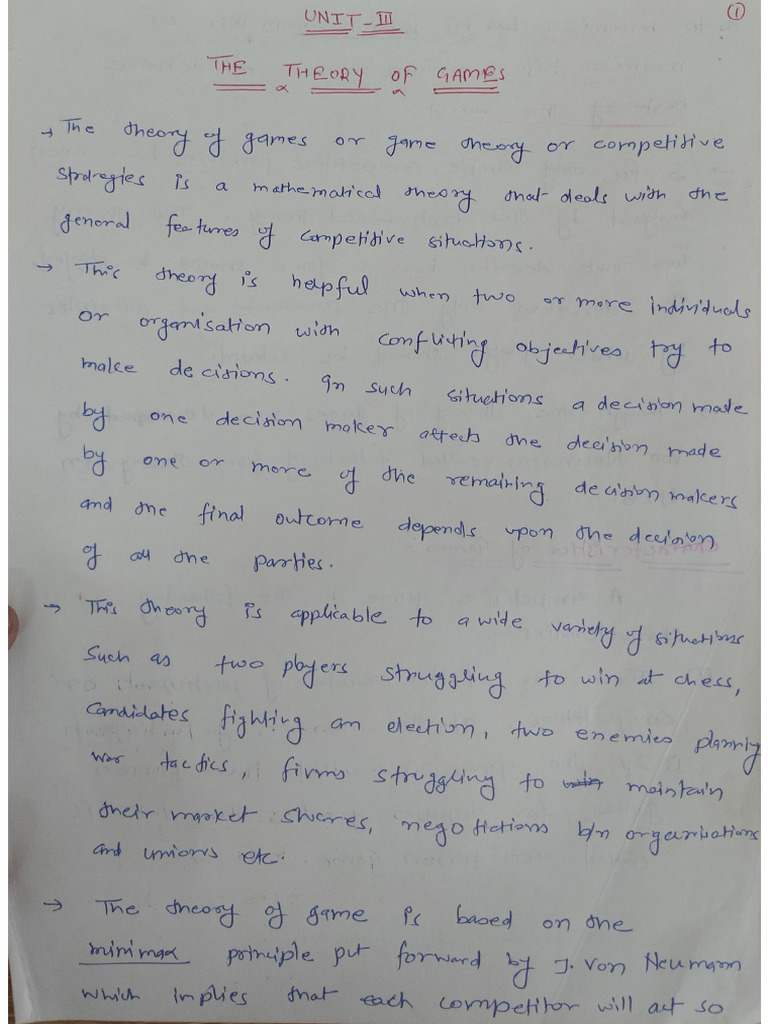 ①
UNIT-III
THE THEORY OF GAMES
→ The theory of games or game theory or competitive
strategies is a mathematical theory that deals with the
general features of competitive situations.
→ This theory is helpful when two or more individuals
or organisation with conflicting objectives try to
make decisions. In such situations a decision made
by one decision maker affects the decision made
by one or more of the remaining decision makers
and the final outcome depends upon the decision
of all the parties.
→ This theory is applicable to a wide variety of situations
such as two players struggling to win at chess,
candidates fighting an election, two enemies planning
war tactics, firms struggling to win maintain
their market shares, negotictions b/n organisations
and unions etc.
→ The theory of game is based on the
minimax principle put forward by J. von Neumann
which implies that each competitor will act so